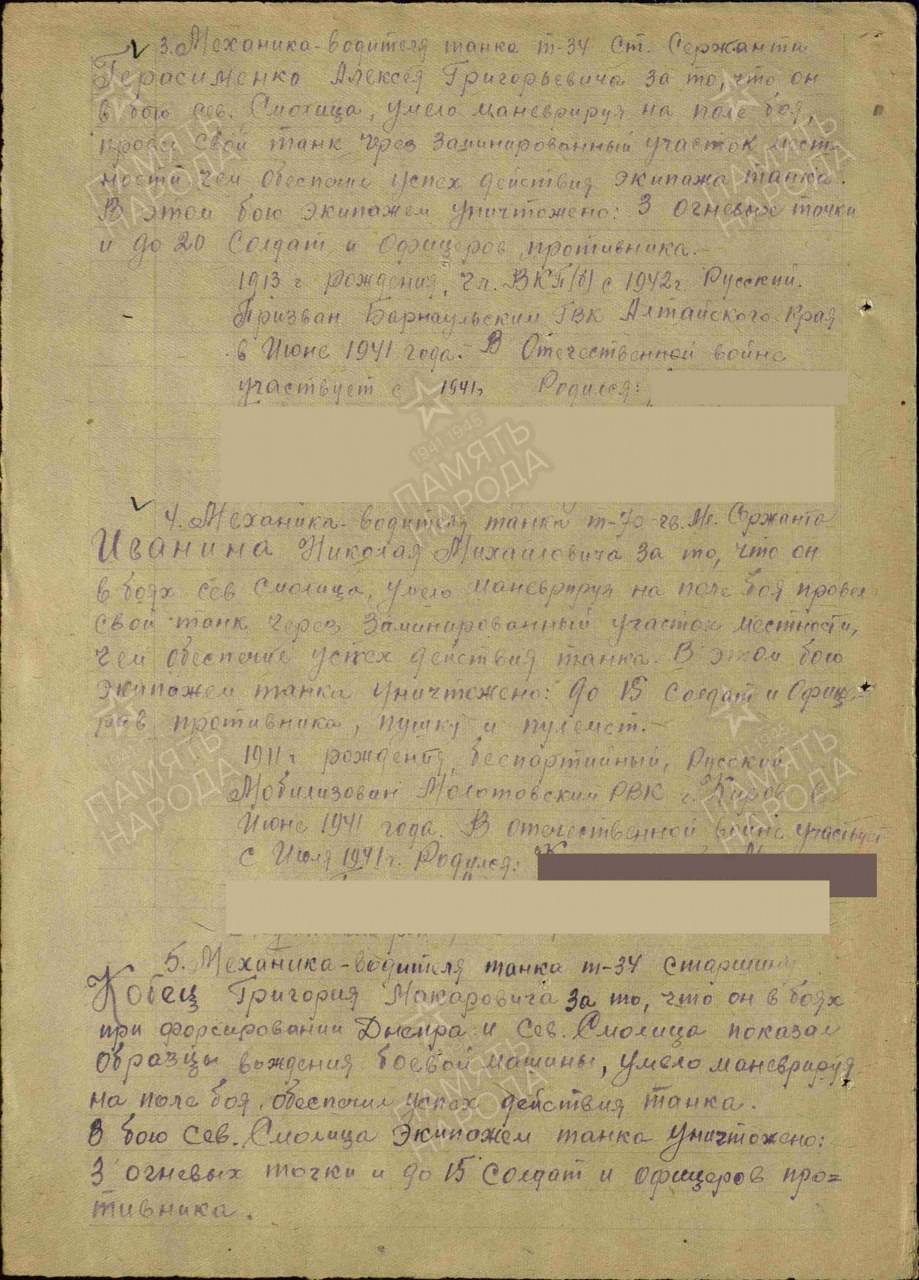 3. Механика-водителя танка т-34 Ст. Сержанта
Герасименко Алексея Григорьевича за то, что он
в бою сев. Смолица, умело маневрируя на поле боя,
провел свой танк через заминированный участок мест-
ности чем обеспечил успех действия экипажа танка.
В этом бою экипажем уничтожено: 3 огневых точки
и до 20 Солдат и Офицеров противника.-
1913 г рождения, Чл. ВКП(б) с 1942г Русский.
Призван Барнаульским ГВК Алтайского Края
в Июне 1941 года. В Отечественной войне
участвует с 1941г Родился:
4. Механика-водителя танка т-70-гв. Мл. Сржанта
Иванина Николая Михаиловича за то, что он
в боях сев Смолица, умело маневрируя на поле боя провел
свой танк через заминированный участок местности,
чем обеспечив успех действия танка. В этом бою
экипажем танка уничтожено: до 15 солдат и Офице-
ров противника, пушку и пулемет.-
1911г рождения, беспартийный, Русский
Мобилизован Молотовским РВК г. Киров в
Июне 1941 года. В Отечественной войне участвует
с Июля 1941г. Родился:
5. Механика-водителя танка т-34 старшину
Кобец Григория Макаровича за то, что он в боях
при форсировании Днепра и Сев. Смолица показал
образцы вождения боевой машины, умело маневрируя
на поле боя, обеспечил успех действия танка.
В бою сев. Смолица Экипажем танка уничтожено:
3 огневых точки и до 15 солдат и офицеров про=
тивника.
ПАМЯТЬ НАРОДА
1941 1945
ПАМЯТЬ НАРОДА
ПАМЯТЬ НАРОДА